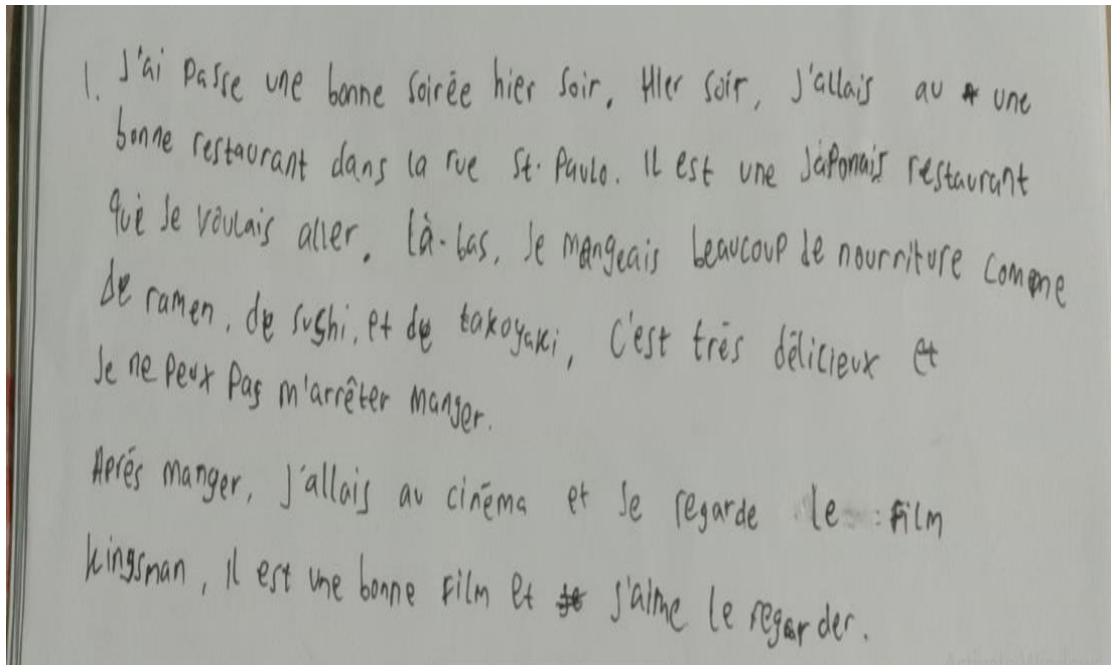 1. J'ai passe une bonne soirée hier soir. Hier soir, J'allais au une
bonne restaurant dans la rue St. Paulo. Il est une Japonais restaurant
que Je voulais aller. Là-bas, Je mangeais beaucoup de nourriture comme
de ramen, de sushi, et de takoyaki, C'est très délicieux et
Je ne Peux Pas m'arrêter manger.
Après manger, J'allais au cinéma et Je regarde le film
kingsman, Il est une bonne Film et J'aime le regarder.